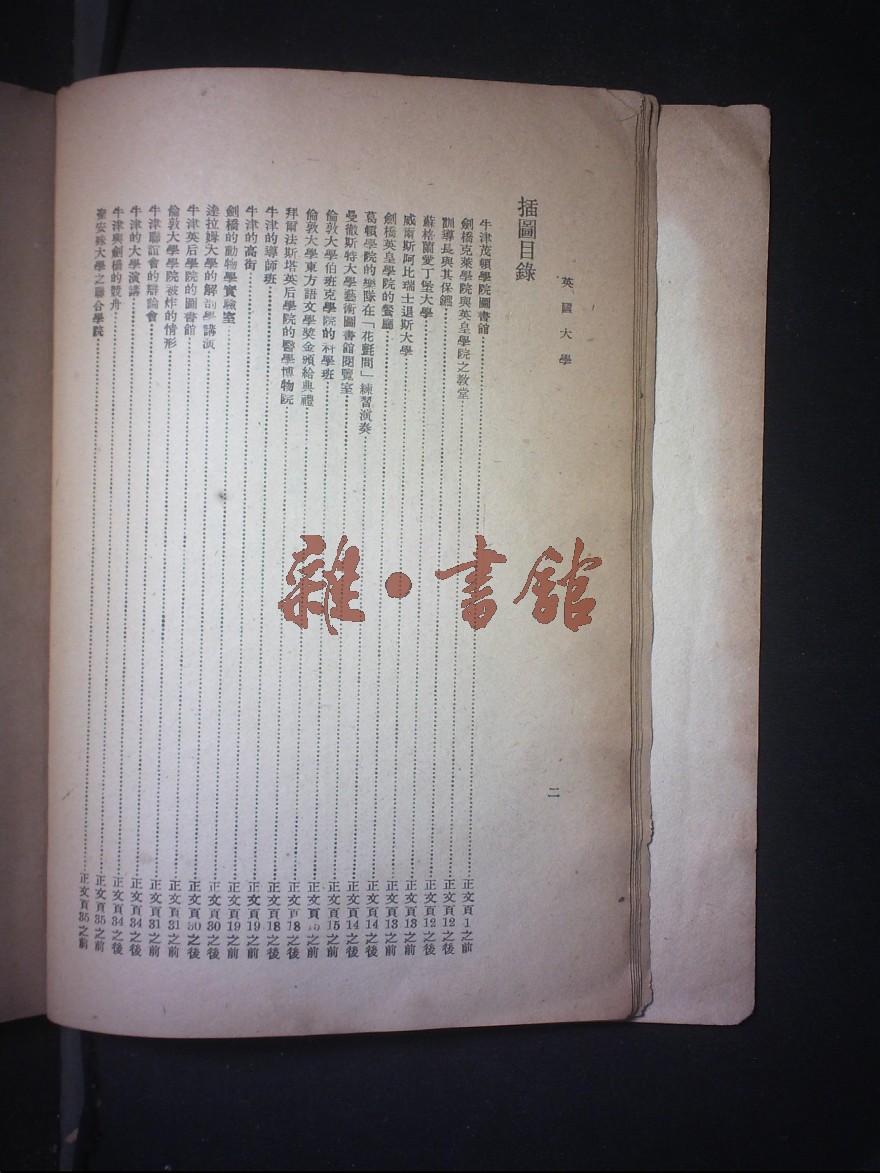 英國大學
二
插圖目錄
牛津茂頓學院圖書館……正文頁1之前
劍橋克萊學院與英皇學院之教堂……正文頁12之後
訓導長與其保鑣……正文頁12之後
蘇格蘭愛丁堡大學……正文頁13之前
威爾斯阿比瑞士退斯大學……正文頁13之前
劍橋英皇學院的餐廳……正文頁14之後
葛頓學院的樂隊在「花氈間」練習演奏……正文頁14之後
曼徹斯特大學藝術圖書館閱覽室……正文頁15之前
倫敦大學伯班克學院的科學班……正文頁15之前
倫敦大學東方語文學獎金頒給典禮……正文頁18之後
拜爾法斯塔英后學院的醫學博物院……正文頁18之後
牛津的導師班……正文頁19之前
牛津的高街……正文頁19之前
劍橋的動物學實驗室……正文頁30之後
達拉姆大學的解剖學講演……正文頁30之後
牛津英后學院的圖書館……正文頁31之前
倫敦大學學院被炸的情形……正文頁31之前
牛津聯誼會的辯論會……正文頁34之後
牛津的大學演講……正文頁34之後
牛津與劍橋的競舟……正文頁35之前
安大學之聯合學院……正文頁35之前
雜·書館